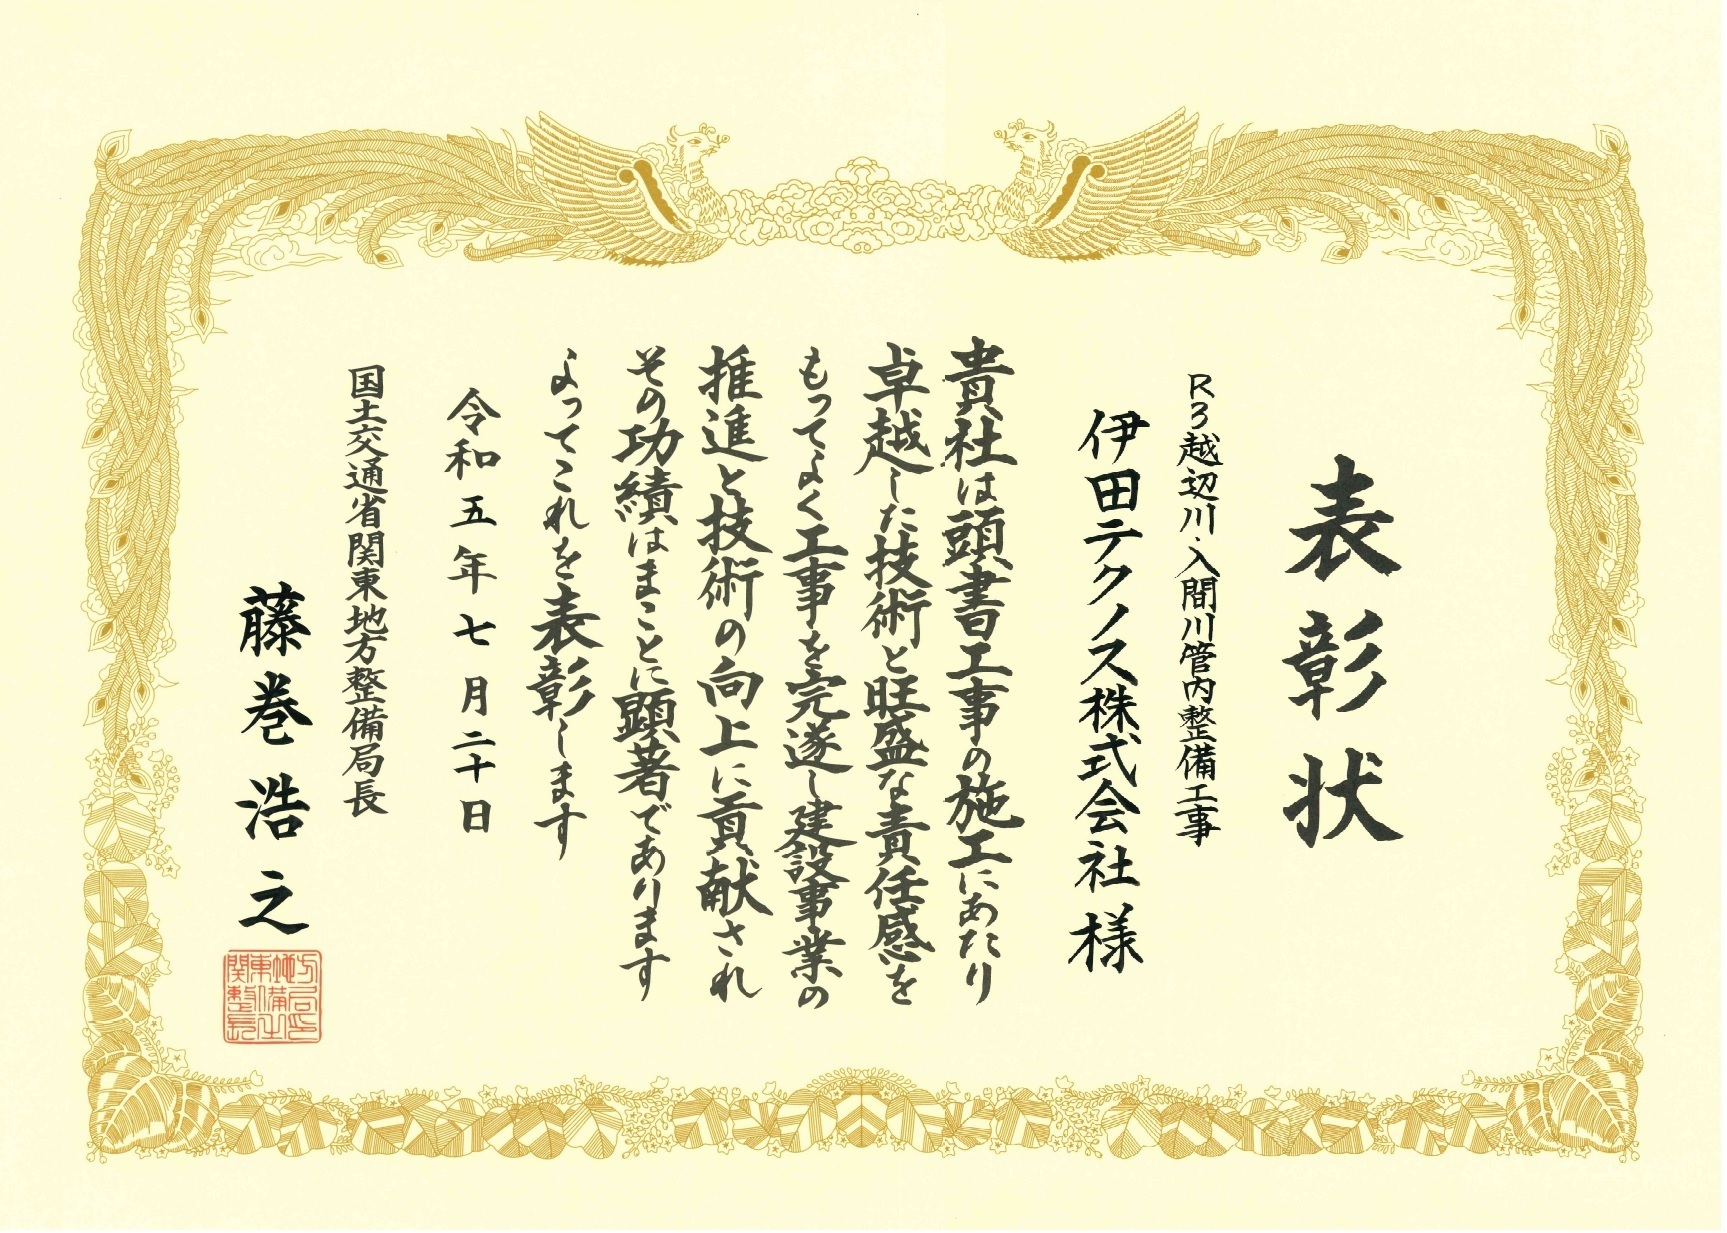 表彰状
R3越辺川・入間川管内整備工事
伊田テクノス株式会社 様
貴社は頭書工事の施工にあたり
卓越した技術と旺盛な責任感を
もってよく工事を完遂し建設事業の
推進と技術の向上に貢献され
その功績はまことに顕著であります
よってこれを表彰します
令和五年七月二十日
国土交通省関東地方整備局長
藤巻浩之
関東地方
整備局
長之印